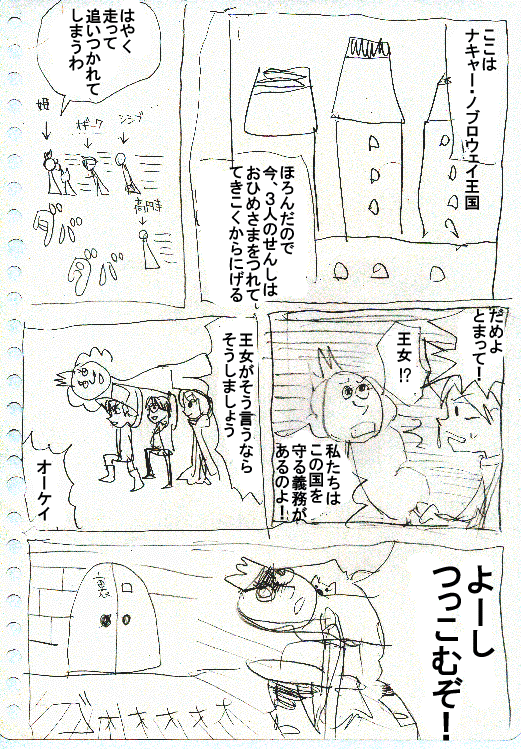 ここは
ナキャー・ノブロウェイ王国
ほろんだので
今、3人のせんしは
おひめさまをつれて
てきこくからにげる
はやく
走って
追いつかれて
しまうわ
姫
ダバ
ダバ
だめよ
とまって!
王女!?
私たちは
この国を
守る義務が
あるのよ!
王女がそう言うなら
そうしましょう
オーケイ
よーし
つっこむぞ!
裏